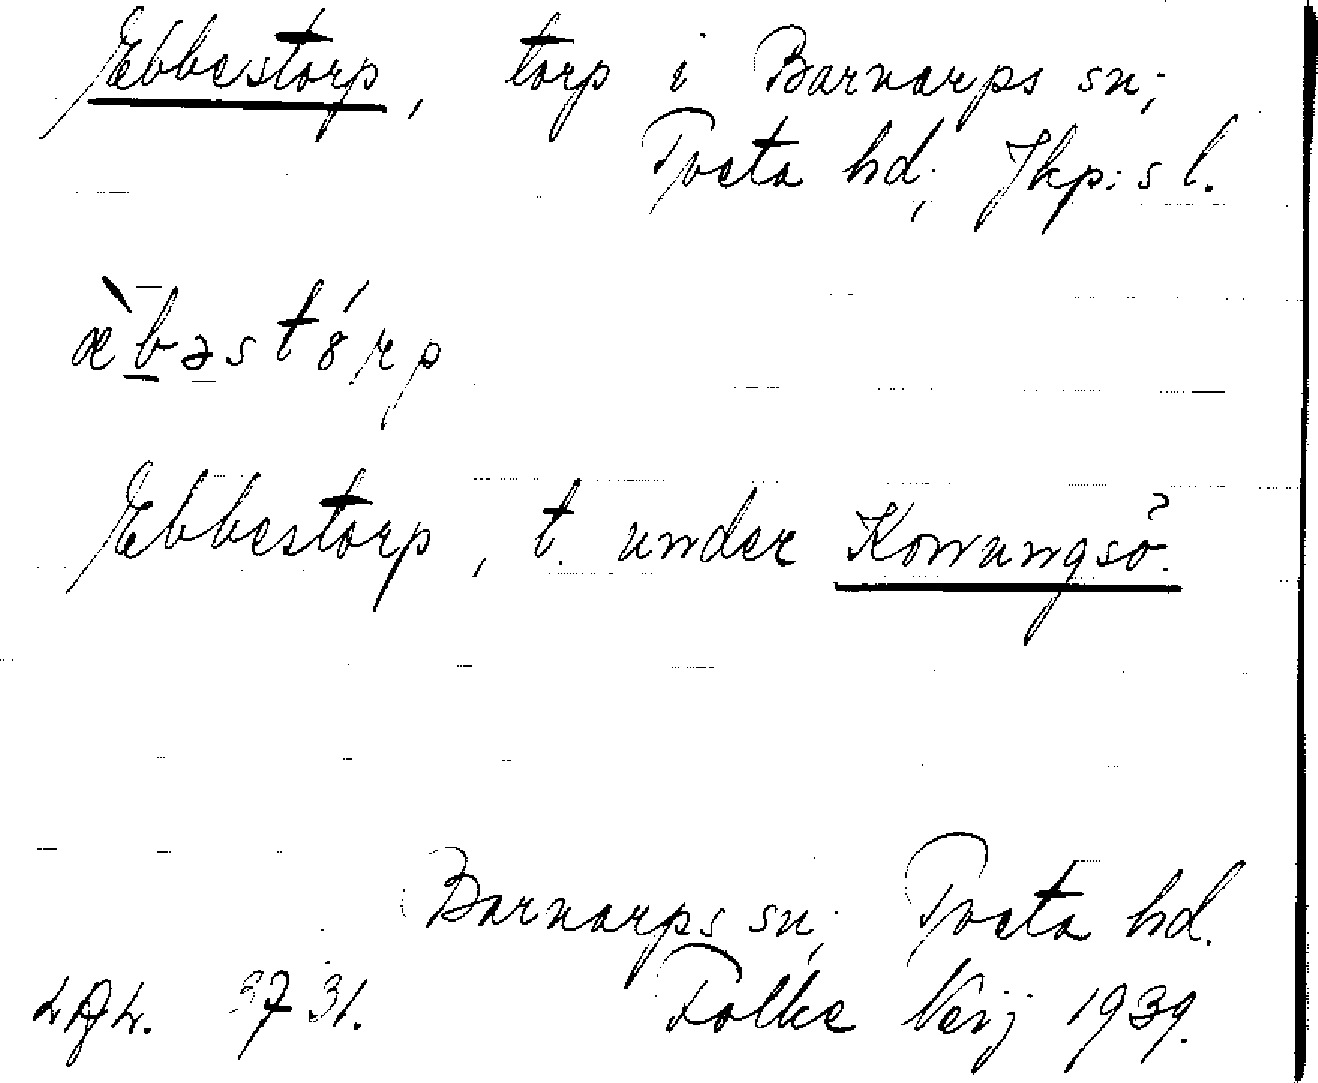 Ebbestorp, torp i Barnarps sn;
Tveta hd; Jkp:s l.
æ̀bəstórp
Ebbestorp, t. under Konungsö.
Barnarps sn; Tveta hd.
3731. Folke 1939.